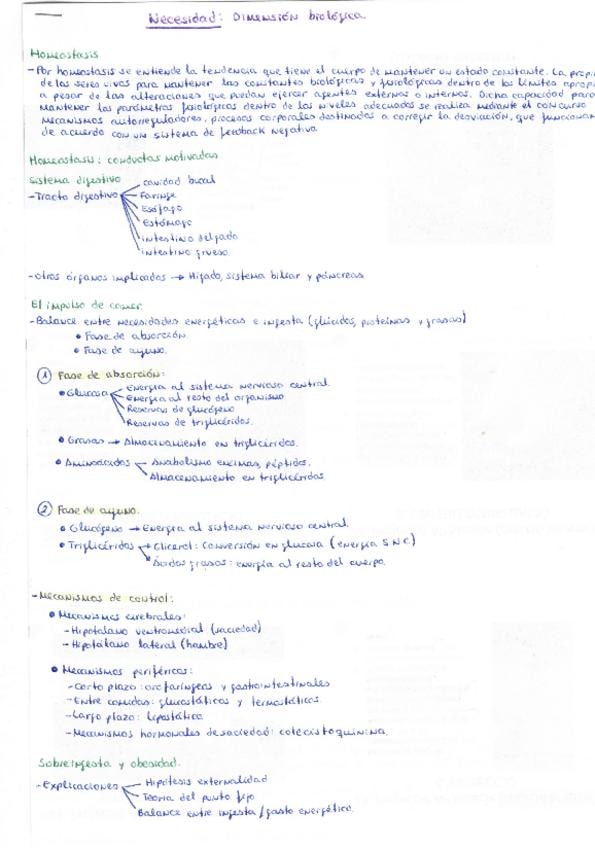 Necesidad: Dimensión biológica.
Homeostasis
- Por homeostasis se entiende la tendencia que tiene el cuerpo de mantener un estado constante. La
de los seres vivos para mantener las constantes biológicas y fisiológicas dentro de los límites
a pesar de las alteraciones que puedan ejercer agentes externos o internos. Dicha capacidad para
mantener los parámetros fisiológicos dentro de los niveles adecuados se realiza mediante el concurso
mecanismos autorreguladores, procesos corporales destinados a corregir la desviación, que funcionan
de acuerdo con un sistema de feedback negativo.
Homeostasis: conductas motivadas
Sistema digestivo
- Tracto digestivo
cavidad bucal
Faringe
Esófago
Estómago
intestino delgado
intestino grueso.
- Otros órganos implicados → Hígado, sistema biliar y páncreas
El impulso de comer.
- Balance entre necesidades energéticas e ingesta (glúcidos, proteínas y grasas)
• Fase de absorción.
• Fase de ayuno.
1 Fase de absorción:
• Glucosa
Energía al sistema nervioso central.
Energía al resto del organismo
Reservas de glucógeno
Reservas de triglicéridos.
• Grasas → Almacenamiento en triglicéridos.
• Aminoácidos
Anabolismo encimas, péptidos.
Almacenamiento en triglicéridos.
2 Fase de ayuno.
• Glucógeno → Energía al sistema nervioso central.
• Triglicéridos
Glicerol: Conversión en glucosa (energía SNC)
Ácidos grasos: energía al resto del cuerpo.
- Mecanismos de control:
• Mecanismos cerebrales:
- Hipotálamo ventromedial (saciedad)
- Hipotálamo lateral (hambre)
• Mecanismos periféricos:
- Corto plazo: orofaríngeos y gastrointestinales
- Entre comidas: glucostáticos y termostáticos.
- Largo plazo: lipostático
- Mecanismos hormonales de saciedad: colecistoquinina.
Sobreingesta y obesidad.
- Explicaciones
Hipótesis externalidad
Teoría del punto fijo
Balance entre ingesta/gasto energético.